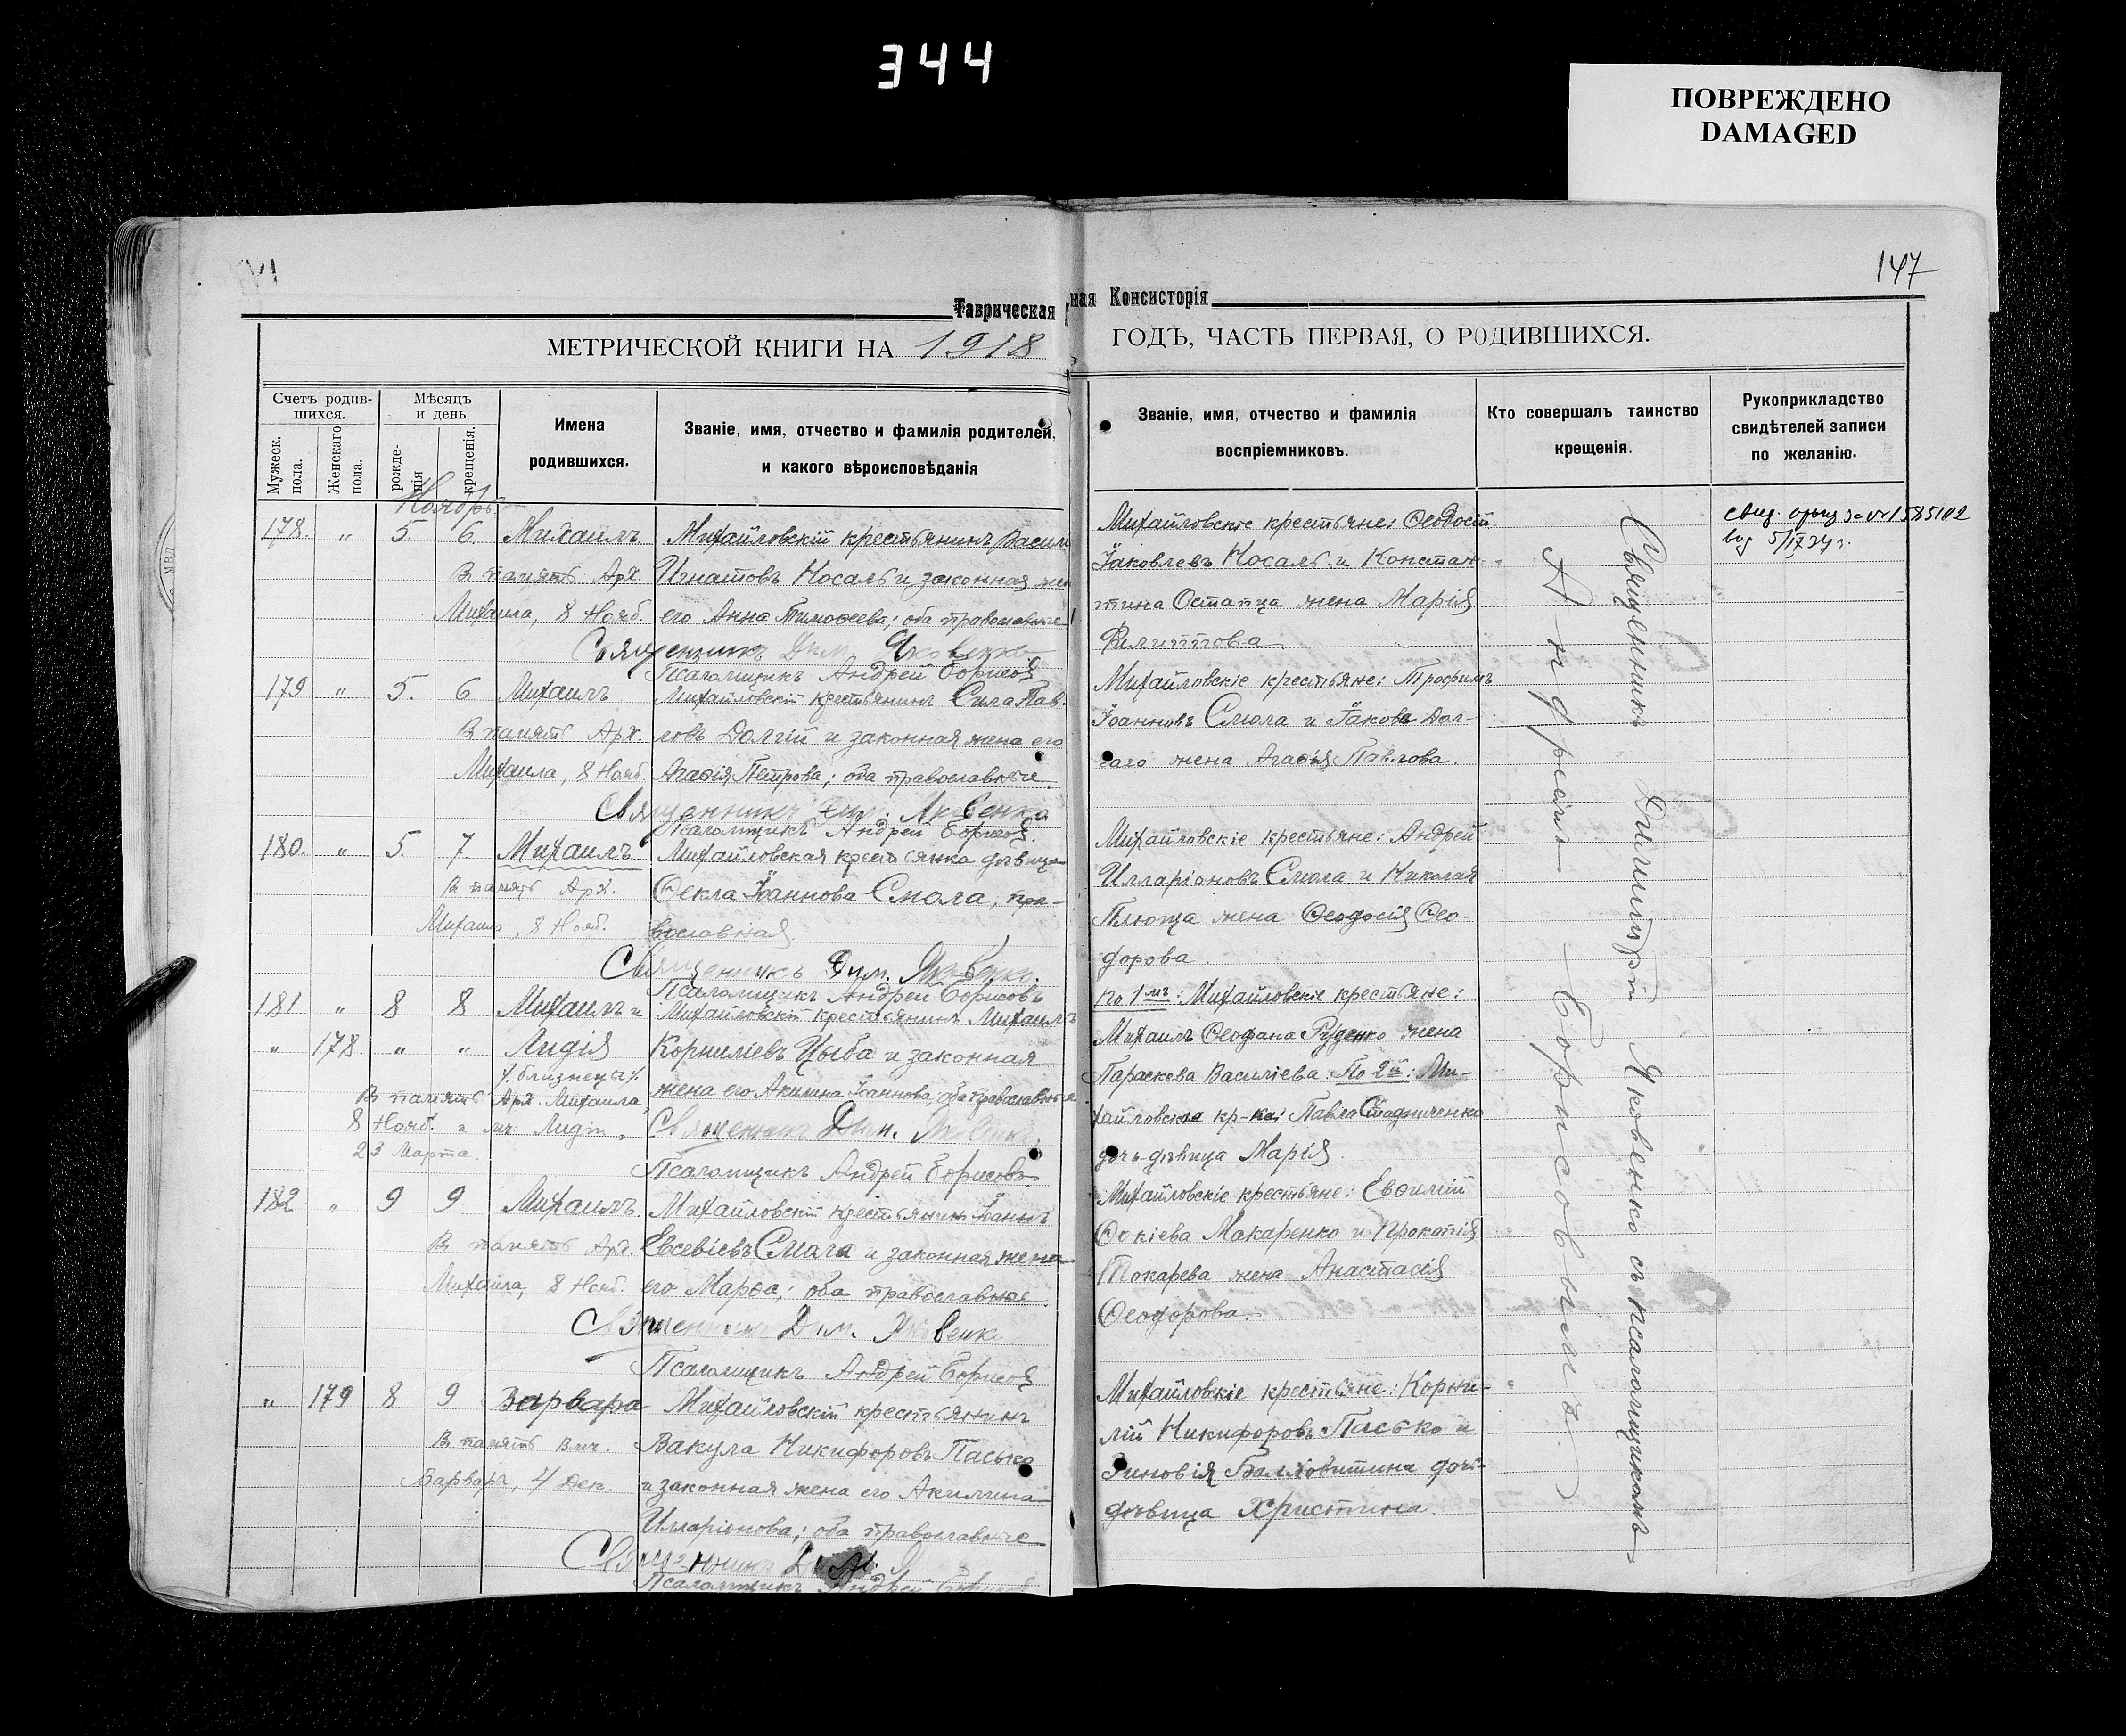 344
ПОВРЕЖДЕНО
DAMAGED
147
Таврическая
ная Консисторія
МЕТРИЧЕСКОЙ КНИГИ НА 1918
ГОДЪ, ЧАСТЬ ПЕРВАЯ, О РОДИВШИХСЯ.
Счетъ родив-
шихся.
Мужеск.
пола.
Женскаго
пола.
Мѣсяцъ
и день
рожде-
нія
крещенія.
Имена
родившихся.
Званіе, имя, отчество и фамилія родителей,
и какого вѣроисповѣданія
Званіе, имя, отчество и фамилія
воспріемниковъ.
Кто совершалъ таинство
крещенія.
Рукоприкладство
свидѣтелей записи
по желанію.
Ноябрь.
178. " 5. 6. Михаилъ Михайловскій крестьянинъ Васил
В память Арх. Игнатовъ Носаль и законная жен
Михаила, 8 Нояб. его Анна Тимоѳеева; оба православные
Священникъ Дим. Яковенко
Псаломщикъ Андрей Борисов
179 " 5. 6 Михаилъ Михайловскій крестьянинъ Сила Пав-
В память Арх. ловъ Долгій и законная жена его
Михаила, 8 Нояб. Агаѳія Петрова; оба православные
Священникъ Дим. Яковенко
Псаломщикъ Андрей Борисов
180. " 5. 7. Михаилъ Михайловская крестьянка дѣвица
В память Арх. Ѳекла Іоаннова Смола, пра-
Михаила, 8 Нояб. вославная
Священникъ Дим. Яковенко.
Псаломщикъ Андрей Борисовъ
181 " 8 8 Михаилъ и Михайловскій крестьянинъ Михаилъ
" 178. " " Лидія Корниліевъ Цыба и законная
/. близнецы /.
жена его Акилина Іоаннова; оба православные
В память Арх. Михаила,
8 Нояб. и мч. Лидіи, Священникъ Дим. Яковенко.
23 Марта.
Псаломщикъ Андрей Борисовъ
182 " 9 9 Михаилъ. Михайловскій крестьянинъ Іоаннъ
В память Арх. Евсевіевъ Смола и законная жена
Михаила, 8 Нояб. его Марѳа; оба православные.
Священникъ Дим. Яковенко
Псаломщикъ Андрей Борисов
" 179 8 9 Варвара Михайловскій крестьянинъ
В память Вмч. Вакула Никифоровъ Пасько
Варвары, 4 Дек. и законная жена его Акилина
Илларіонова; оба православные
Священникъ
Псаломщикъ Андрей
Михайловскіе крестьяне: Ѳеодосій
Іаковлевъ Носаль и Констан-
тина Остапца жена Марія
Филиппова
Михайловскіе крестьяне: Трофимъ
Іоанновъ Смола и Іакова Дол-
гаго жена Агаѳія Павлова.
Михайловскіе крестьяне: Андрей
Илларіоновъ Смола и Николая
Плюща жена Ѳеодосія Ѳео-
дорова.
По 1мъ: Михайловскіе крестьяне:
Михаилъ Ѳеофана Руденко жена
Параскева Василіева. По 2й: Ми-
хайловская кр-ка: Павла Стадниченко
дочь дѣвица Марія.
Михайловскіе крестьяне: Евѳимій
Макаренко и Прокопія
Токарева жена Анастасія
Ѳеодорова.
Михайловскіе крестьяне: Корни-
лій Никифоровъ Пасько и
Зиновія дочь
дѣвица Христина.
Священникъ Димитрій Яковенко съ псаломщикомъ
Андреемъ Борисовымъ.